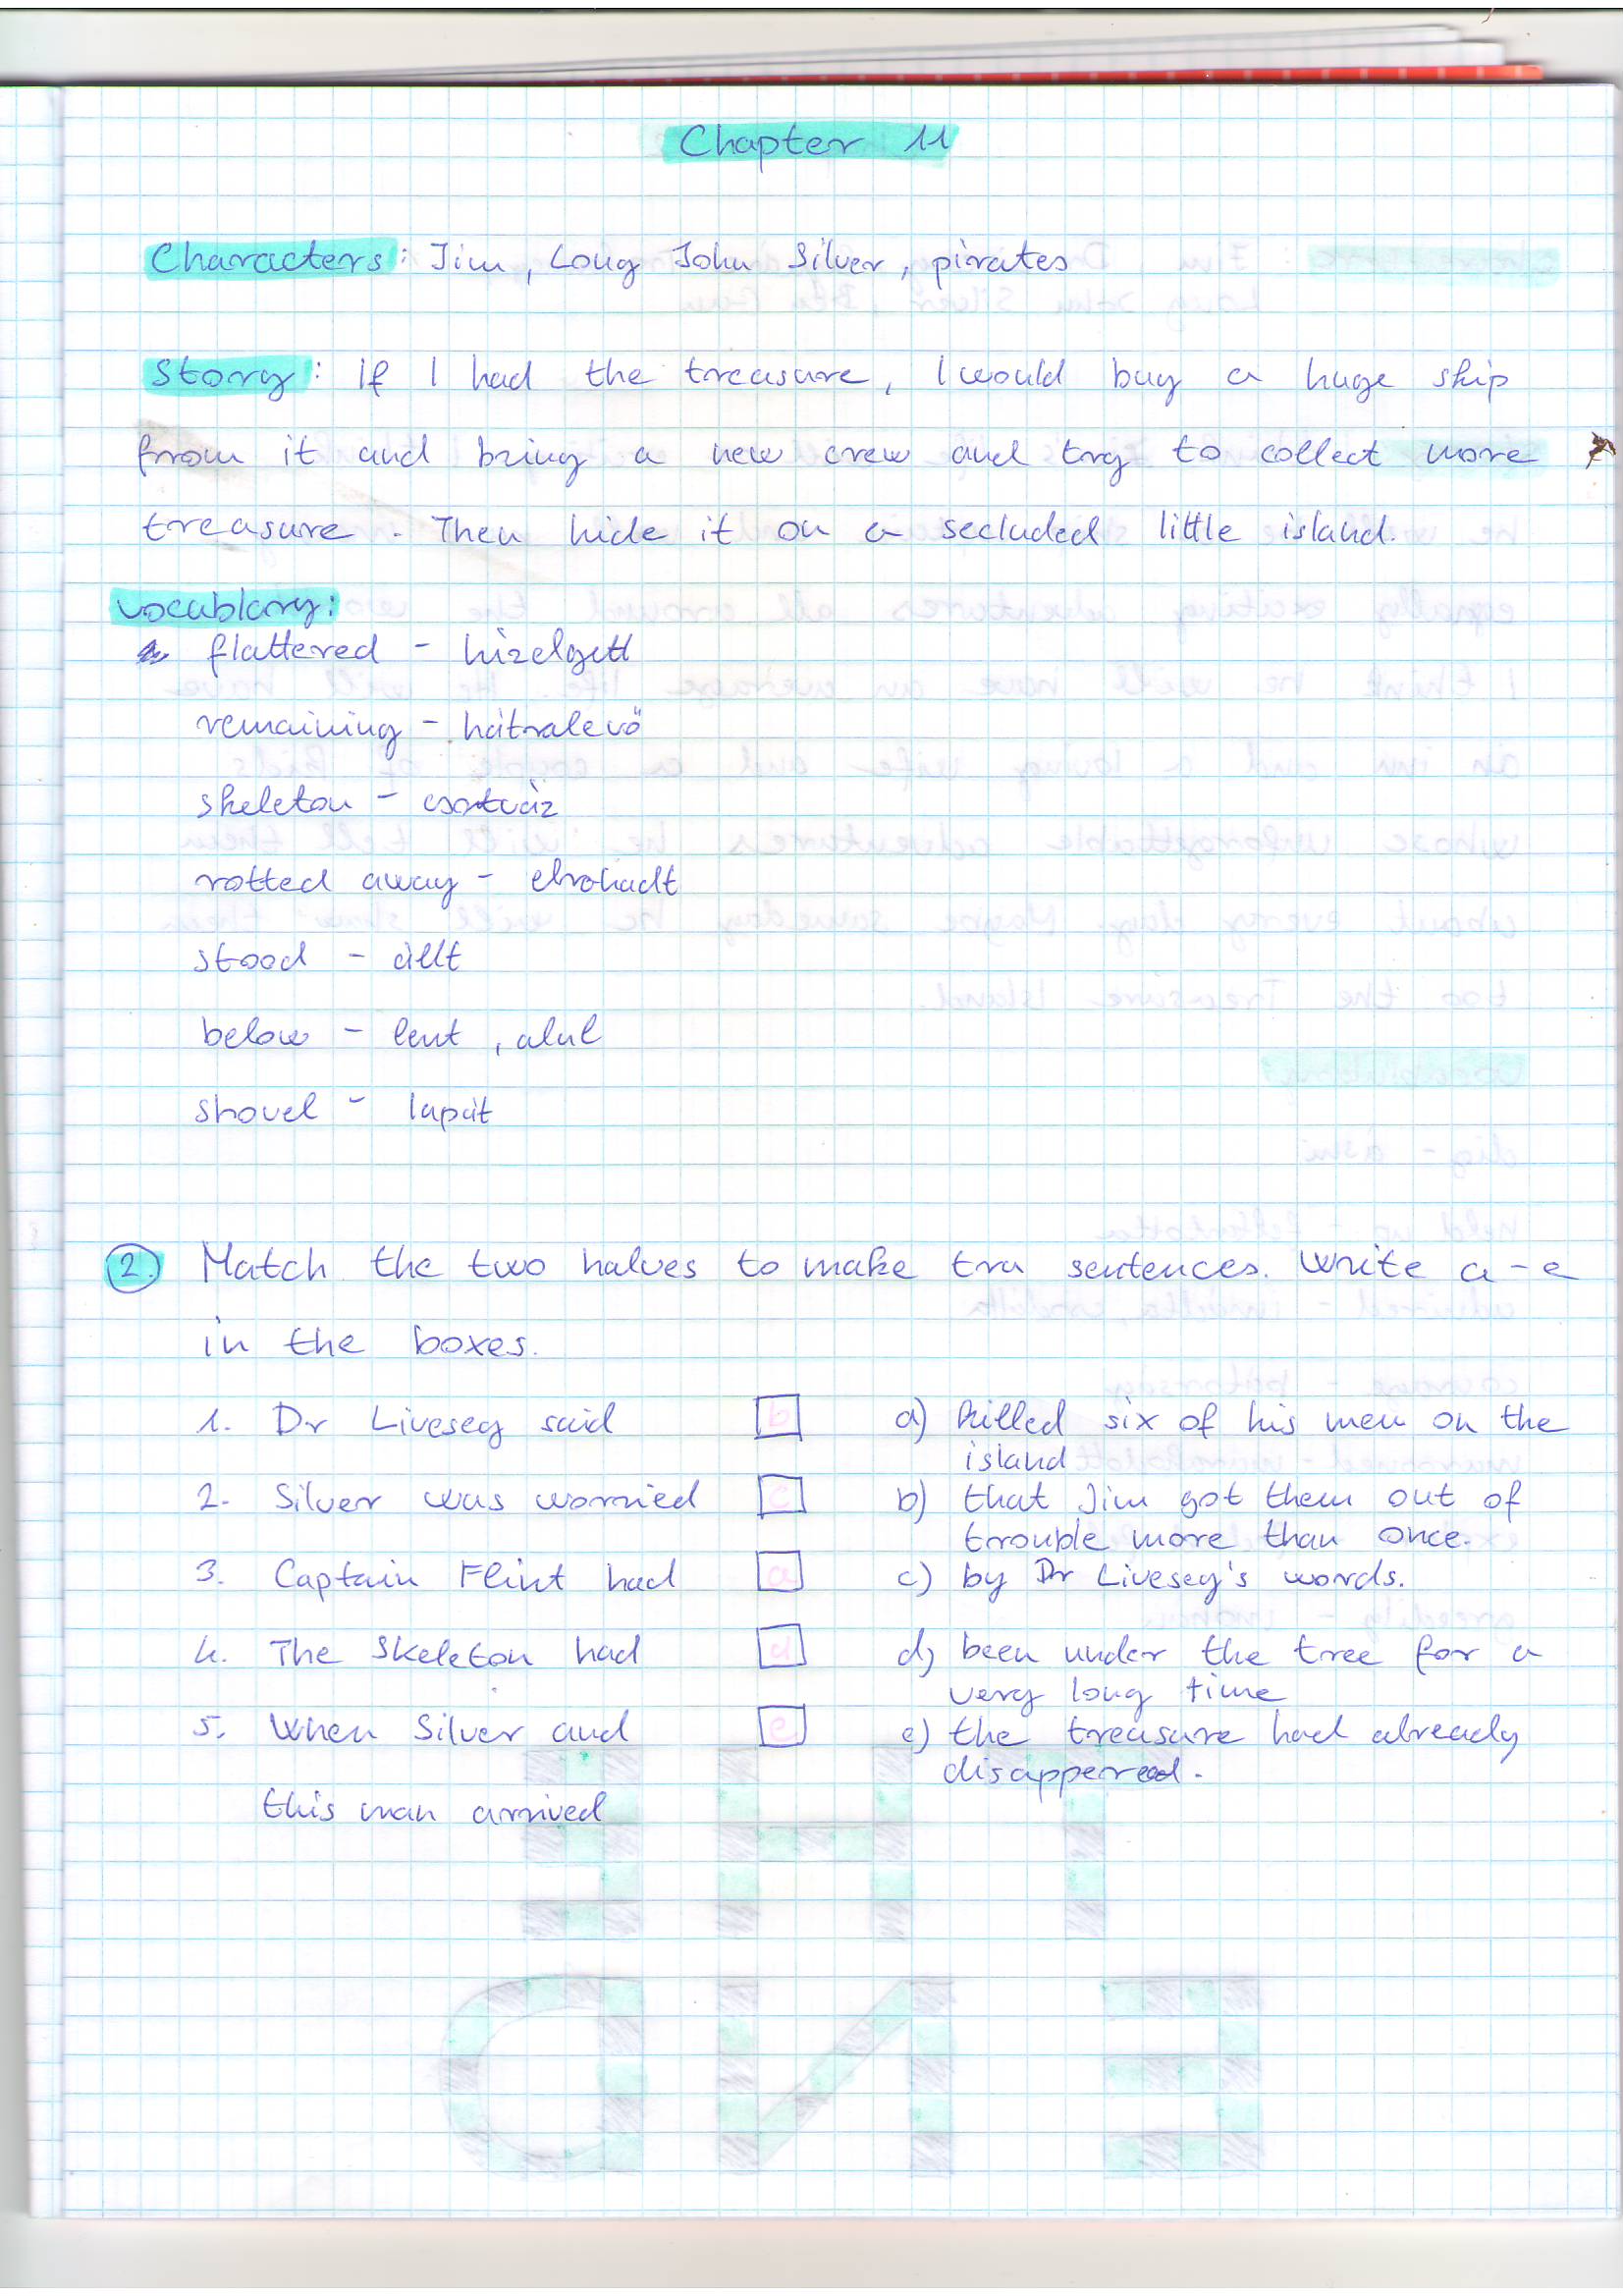 Chapter 11
Characters: Jim, Long John Silver, pirates
Story: If I had the treasure, I would buy a huge ship
from it and bring a new crew and try to collect more
treasure. Then hide it on a secluded little island.
vocablary:
flattered - hízelgett
remaining - hátralevő
skeleton - csontváz
rotted away - elrohadt
stood - állt
below - lent, alul
shovel - lapát
2. Match the two halves to make tru sentences. Write a-e
in the boxes.
1. Dr Livesey said b a) killed six of his men on the
island
2. Silver was worried c b) that Jim got them out of
trouble more than once.
3. Captain Flint had a c) by Dr Livesey's words.
4. The skeleton had d d) been under the tree for a
very long time
5. When Silver and e e) the treasure had already
disappered.
this man arrived